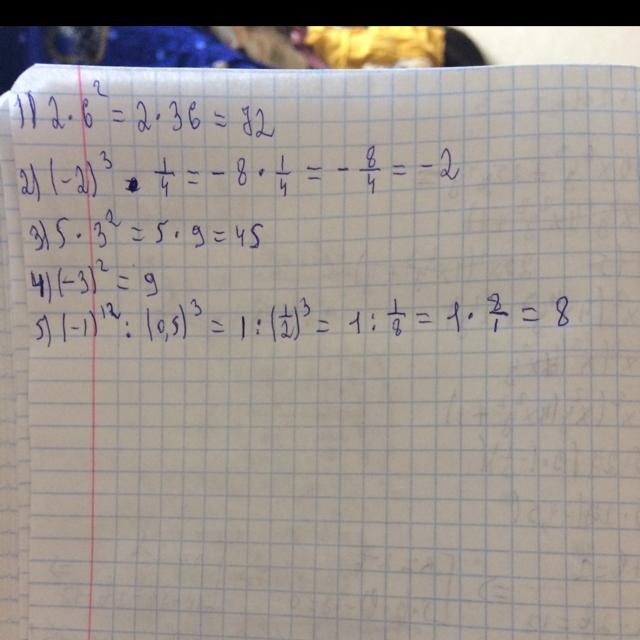 1) 2·6² = 2·36 = 72
2) (-2)³ · 1/4 = -8 · 1/4 = -8/4 = -2
3) 5·3² = 5·9 = 45
4) (-3)² = 9
5) (-1)¹² : (0,5)³ = 1 : (1/2)³ = 1 : 1/8 = 1 · 8/1 = 8